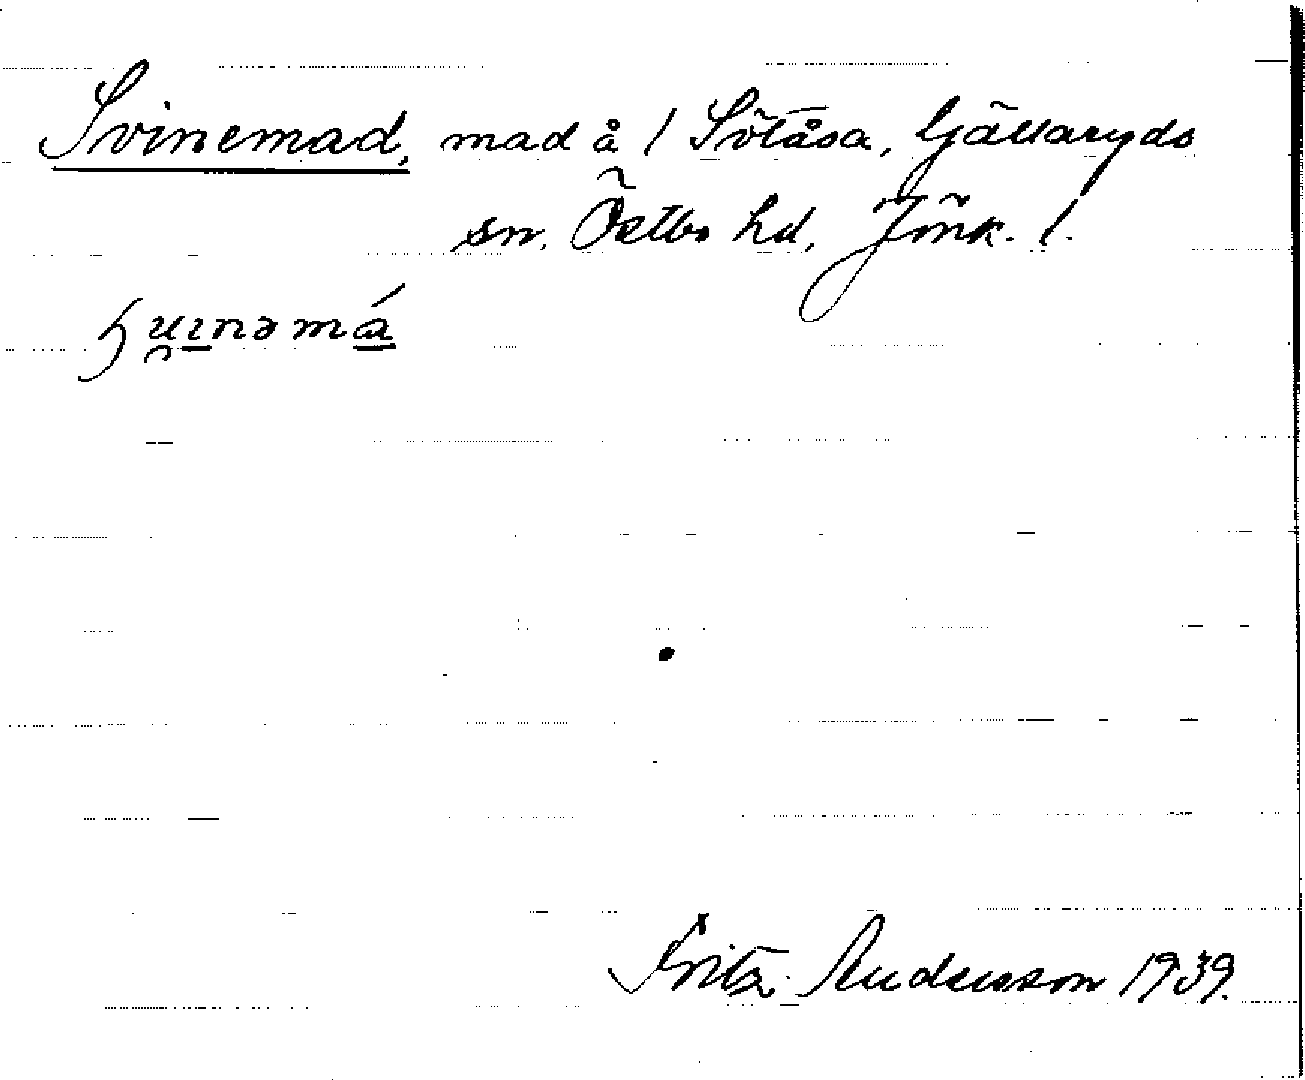 Svinemad, mad å / Sötåsa, Gällaryds
sn, Östbo hd, Jönk. l.
Fritz Andersson 1939.